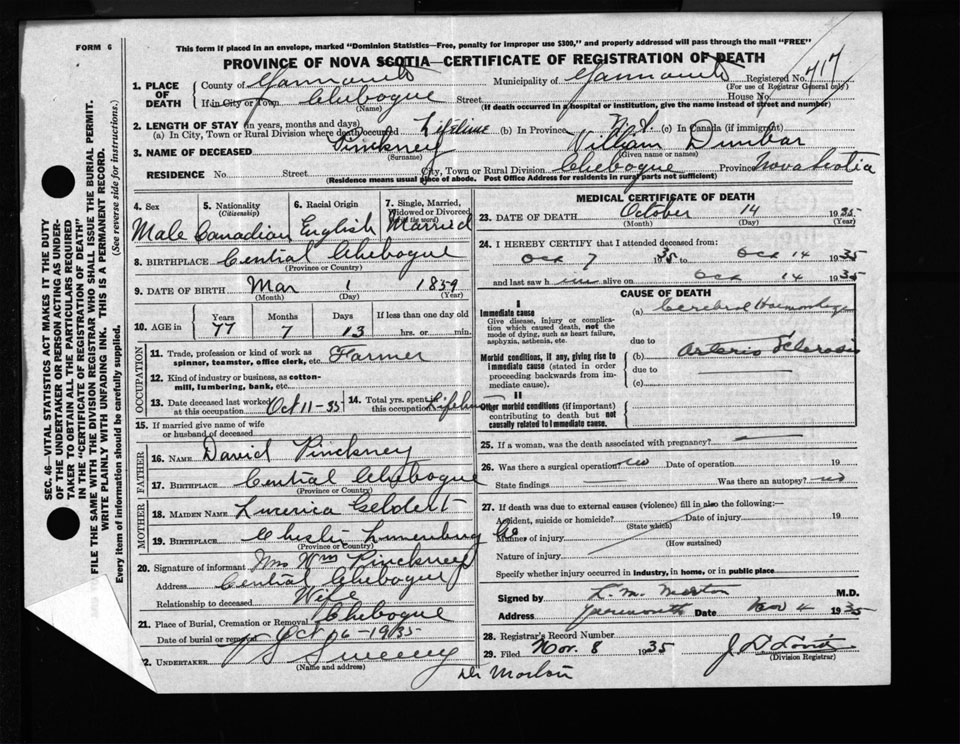 FORM 6
This form if placed in an envelope, marked "Dominion Statistics—Free, penalty for improper use $300," and properly addressed will pass through the mail "FREE"
PROVINCE OF NOVA SCOTIA—CERTIFICATE OF REGISTRATION OF DEATH
1. PLACE OF DEATH
County of Yarmouth Municipality of Yarmouth Registered No. 717
(For use of Registrar General only)
If in City or Town Chebogue Street House No.
(Name) (If death occurred in a hospital or institution, give the name instead of street and number)
2. LENGTH OF STAY (in years, months and days)
(a) In City, Town or Rural Division where death occurred Lifetime (b) In Province N.S. (c) In Canada (if immigrant)
3. NAME OF DECEASED Pinkney William Dunbar
(Surname) (Given name or names)
RESIDENCE No. Street City, Town or Rural Division Chebogue Province Nova Scotia
(Residence means usual place of abode. Post Office Address for residents in rural parts not sufficient)
4. Sex Male
5. Nationality (Citizenship) Canadian
6. Racial Origin English
7. Single, Married, Widowed or Divorced Married
8. BIRTHPLACE Central Chebogue
(Province or Country)
9. DATE OF BIRTH Mar 1 1859
(Month) (Day) (Year)
10. AGE in Years Months Days If less than one day old
77 7 13 hrs. or min.
OCCUPATION
11. Trade, profession or kind of work as spinner, teamster, office clerk, etc. Farmer
12. Kind of industry or business, as cotton-mill, lumbering, bank, etc.
13. Date deceased last worked at this occupation Oct 11-35 14. Total yrs. spent in this occupation Lifetime
15. If married give name of wife or husband of deceased
FATHER
16. NAME David Pinckney
17. BIRTHPLACE Central Chebogue
(Province or Country)
MOTHER
18. MAIDEN NAME
19. BIRTHPLACE Chester Lunenburg Co
(Province or Country)
20. Signature of informant Mrs Wm Pinckney
Address Central Chebogue
Relationship to deceased Wife
21. Place of Burial, Cremation or Removal Chebogue
Date of burial or removal Oct 16-1935
22. UNDERTAKER Sweeny
(Name and address)
Dr Morton
MEDICAL CERTIFICATE OF DEATH
23. DATE OF DEATH October 14 1935
(Month) (Day) (Year)
24. I HEREBY CERTIFY that I attended deceased from:
Oct 7 1935 to Oct 14 1935
and last saw h im alive on Oct 14 1935
CAUSE OF DEATH
I
Immediate cause
Give disease, injury or complication which caused death, not the mode of dying, such as heart failure, asphyxia, asthenia, etc.
(a) Cerebral Haemorrhage
due to
Morbid conditions, if any, giving rise to immediate cause (stated in order proceeding backwards from immediate cause).
(b) Arterio Sclerosis
due to
(c)
II
Other morbid conditions (if important) contributing to death but not causally related to immediate cause.
25. If a woman, was the death associated with pregnancy?
26. Was there a surgical operation no Date of operation 19
State findings Was there an autopsy? no
27. If death was due to external causes (violence) fill in also the following:
Accident, suicide or homicide? Date of injury 19
(State which)
Manner of injury
(How sustained)
Nature of injury
Specify whether injury occurred in industry, in home, or in public place
Signed by Morton M.D.
Address Yarmouth Date Nov 4 1935
28. Registrar's Record Number
29. Filed Nov. 8 1935
(Division Registrar)
SEC. 46—VITAL STATISTICS ACT MAKES IT THE DUTY OF THE UNDERTAKER OR PERSON ACTING AS UNDERTAKER TO OBTAIN ALL THE PARTICULARS REQUIRED IN THE "CERTIFICATE OF REGISTRATION OF DEATH"
FILE THE SAME WITH THE DIVISION REGISTRAR WHO SHALL ISSUE THE BURIAL PERMIT.
WRITE PLAINLY WITH UNFADING INK. THIS IS A PERMANENT RECORD.
Every item of information should be carefully supplied. (See reverse side for instructions.)